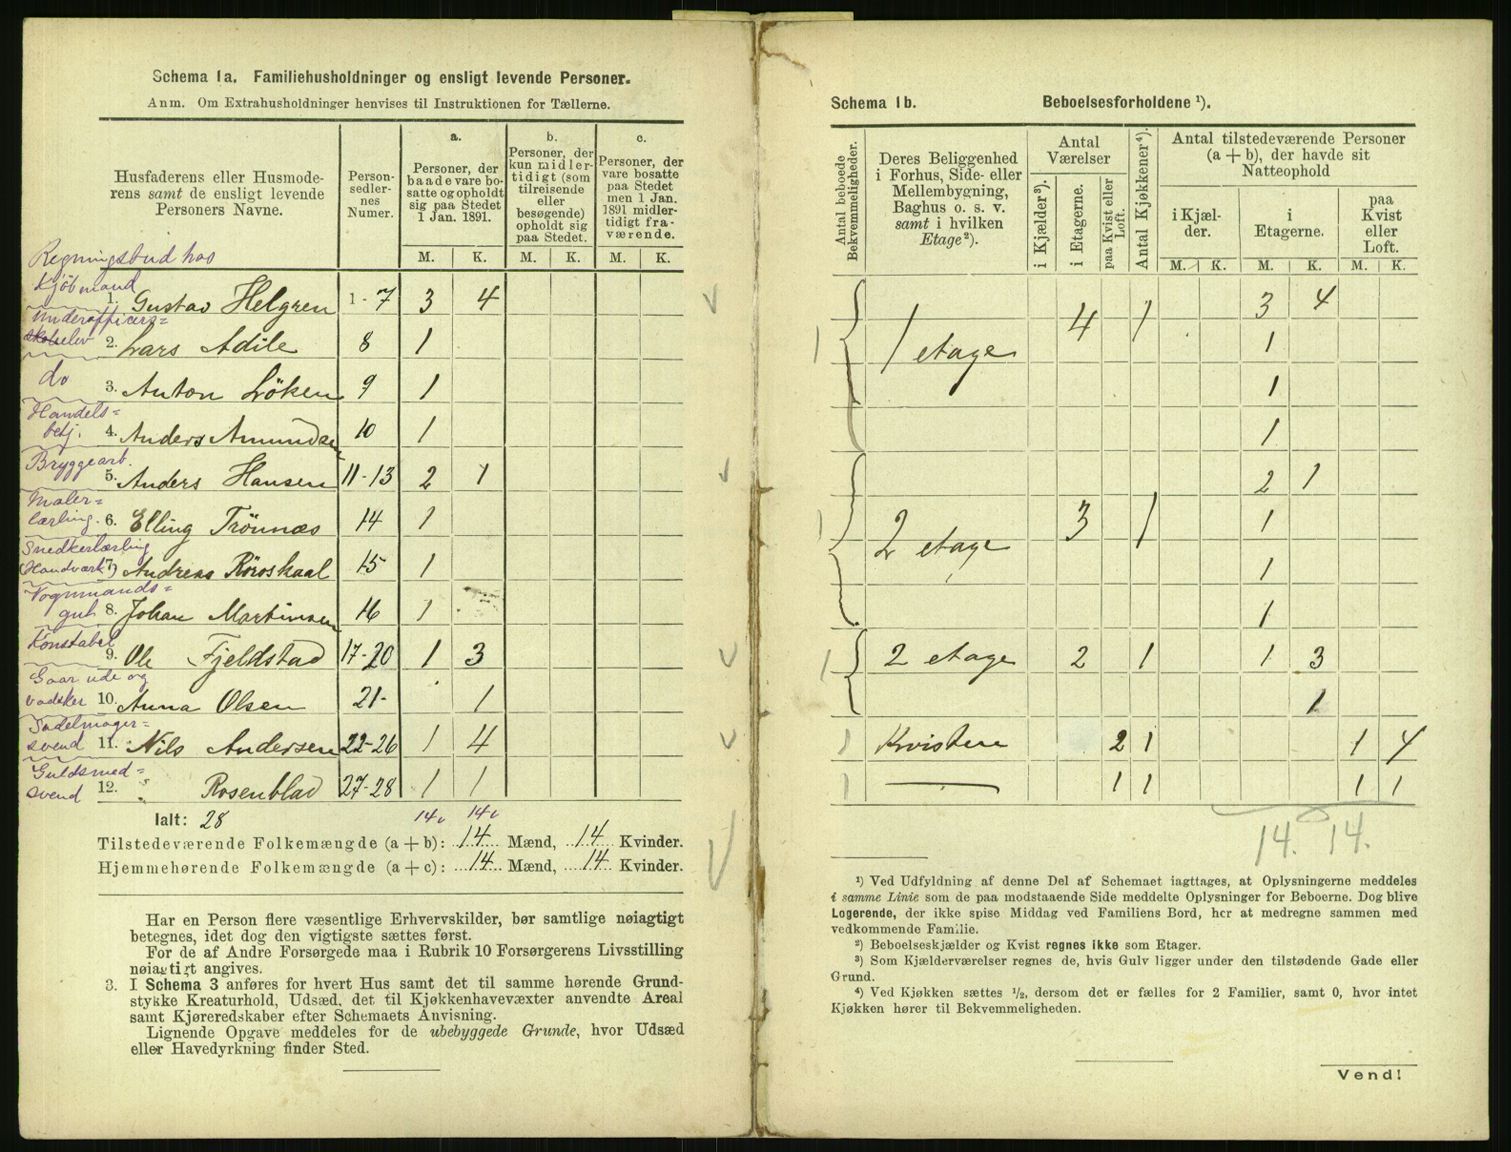 Schema 1a. Familiehusholdninger og ensligt levende Personer.
Anm. Om Extrahusholdninger henvises til Instruktionen for Tællerne.
Husfaderens eller Husmode-
rens samt de ensligt levende
Personers Navne.
Person-
sedler-
nes
Numer.
a.
Personer, der
baade vare bo-
satte og opholdt
sig paa Stedet
1 Jan. 1891.
b.
Personer, der
kun midler-
tidigt (som
tilreisende
eller
besøgende)
opholdt sig
paa Stedet.
c.
Personer, der
vare bosatte
paa Stedet
men 1 Jan.
1891 midler-
tidigt fra-
værende.
M. K. M. K. M. K.
Regningsbud hos
Kjøbmand
1. Gustav Helgren 1-7 3 4
Underofficers=
skoleelev
2. Lars Adile 8 1
do
3. Anton Löken 9 1
Handels=
betj.
4. Anders Amundsen 10 1
Bryggearb.
5. Anders Hansen 11-13 2 1
Maler=
lærling.
6. Elling Trönnæs 14 1
Snedkerlærling
(Haandværk)
7. Andreas Röroskaal 15 1
Vognmands=
gut
8. Johan Martinsen 16 1
Konstabel
9. Ole Fjeldstad 17-20 1 3
Gaar ude og
vadsker
10. Anna Olsen 21- 1
Sadelmager=
svend
11. Nils Andersen 22-26 1 4
Guldsmed=
svend
12. Rosenblad 27-28 1 1
Ialt: 28 14 14
Tilstedeværende Folkemængde (a + b): 14 Mænd, 14 Kvinder.
Hjemmehørende Folkemængde (a + c): 14 Mænd, 14 Kvinder.
Har en Person flere væsentlige Erhvervskilder, bør samtlige nøiagtigt
betegnes, idet dog den vigtigste sættes først.
For de af Andre Forsørgede maa i Rubrik 10 Forsørgerens Livsstilling
nøiagtigt angives.
3. I Schema 3 anføres for hvert Hus samt det til samme hørende Grund-
stykke Kreaturhold, Udsæd, det til Kjøkkenhavevæxter anvendte Areal
samt Kjøreredskaber efter Schemaets Anvisning.
Lignende Opgave meddeles for de ubebyggede Grunde, hvor Udsæd
eller Havedyrkning finder Sted.
Schema 1b. Beboelsesforholdene ¹).
Antal beboede
Bekvemmeligheder.
Deres Beliggenhed
i Forhus, Side- eller
Mellembygning,
Baghus o. s. v.
samt i hvilken
Etage²).
Antal
Værelser
i Kjælder³).
i Etagerne.
paa Kvist eller
Loft.
Antal Kjøkkener⁴).
Antal tilstedeværende Personer
(a + b), der havde sit
Natteophold
i Kjæl-
der.
i
Etagerne.
paa
Kvist
eller
Loft.
M. K. M. K. M. K.
3 4
1 1 etage 4 1 1
1
1
2 1
1 2 etage 3 1 1
1
1
1 2 etage 2 1 1 3
1
1 Kvisten 2 1 1 4
1 — 1 1 1 1
14. 14.
¹) Ved Udfyldning af denne Del af Schemaet iagttages, at Oplysningerne meddeles
i samme Linie som de paa modstaaende Side meddelte Oplysninger for Beboerne. Dog blive
Logerende, der ikke spise Middag ved Familiens Bord, her at medregne sammen med
vedkommende Familie.
²) Beboelseskjælder og Kvist regnes ikke som Etager.
³) Som Kjælderværelser regnes de, hvis Gulv ligger under den tilstødende Gade eller
Grund.
⁴) Ved Kjøkken sættes ¹/₂, dersom det er fælles for 2 Familier, samt 0, hvor intet
Kjøkken hører til Bekvemmeligheden.
Vend!